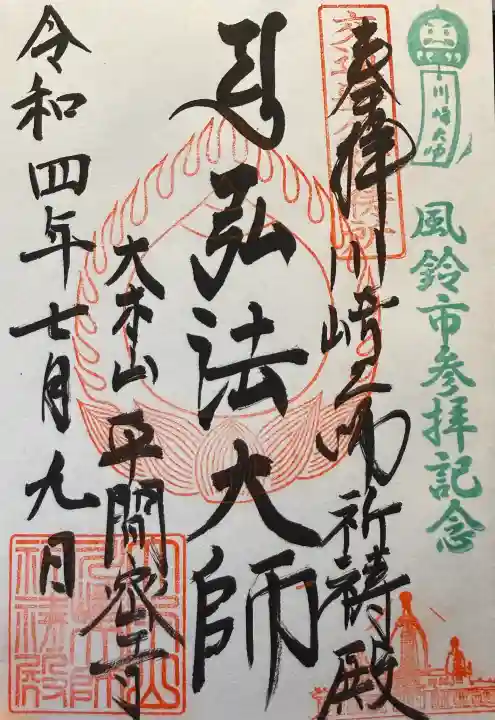 川崎大師
風鈴市参拝記念
奉拝 川崎大師祈祷殿
弘法大師
大本山 平間密寺
令和四年七月九日